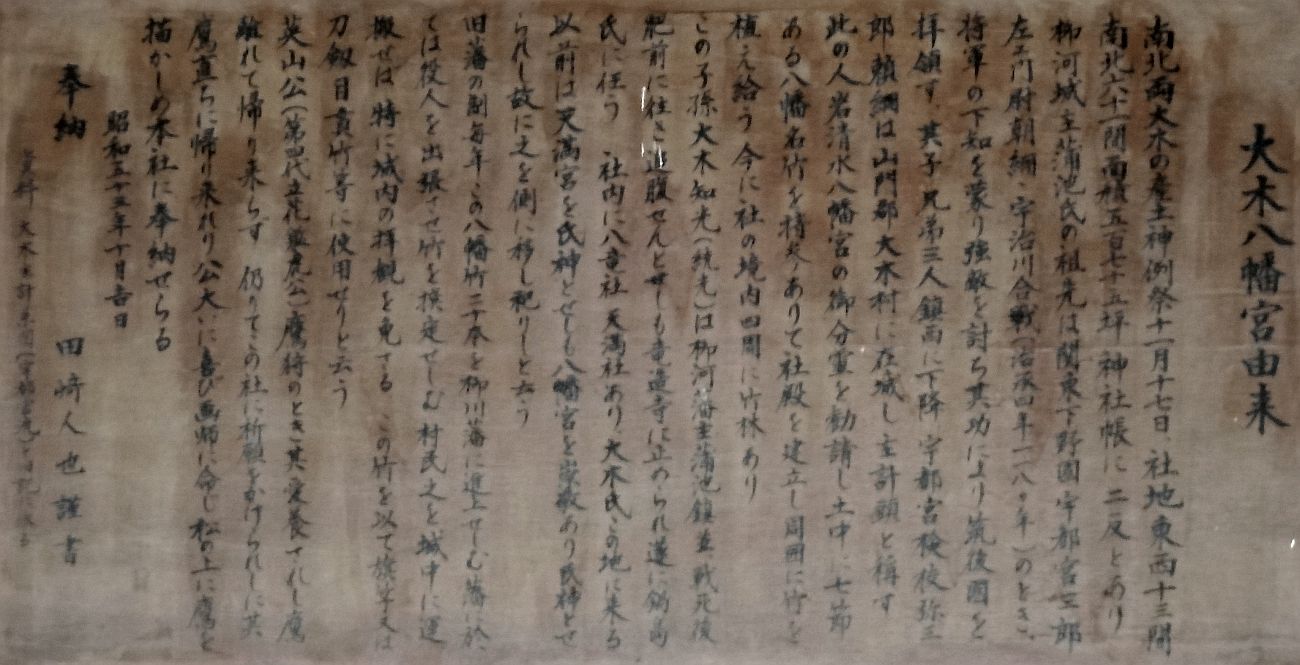 大木八幡宮由来
南北両大木の産土神例祭十一月十七日、社地東西十三間
南北六十一間面積五百七十五坪神社帳に二反とあり
柳河城主蒲池氏の祖先は関東下野国宇都宮三郎
左ヱ門尉朝綱、宇治川合戦(治承四年一一八〇年)のとき、
将軍の下知を蒙り強敵を討ち其功により筑後国を
拝領す、其子兄弟三人鎮西に下降宇都宮検校弥三
郎頼綱は山門郡大木村に在城し主計頭と称す
此の人岩清水八幡宮の御分霊を勧請し土中に七節
ある八幡名竹を持ちありて社殿を建立し周囲に竹を
植え給う今に社の境内四周に竹林あり
この子孫大木知光(統光)は柳河藩主蒲池鎮並戦死後
肥前に往き追腹せんとせしも竜造寺に止められ遂に鍋島
氏に仕う 社内に八竜社天満社あり大木氏この地に来る
以前は天満宮を氏神とせしも八幡宮を崇敬あり氏神とせ
られし故に之を側に移し祀りしと云う
旧藩の割毎年この八幡竹二十本を柳川藩に進上せしむ藩に於
ては役人を出張させ竹を撰定せしむ村民之を城中に運
搬せば特に城内の拝観を免ずる この竹を以て旗竿又は
刀剱目貫竹等に使用せりと云う
英山公(第四代立花鑑虎公)鷹狩のとき其愛養されし鷹
離れて帰り来らず 仍りてこの社に祈願をかけられしに其
鷹直ちに帰り来れり公大いに喜び画師に命じ松の上に鷹を
描かしめ本社に奉納せらる
昭和五十五年十月吉日
奉納 田崎人也謹書
資料 大木主計